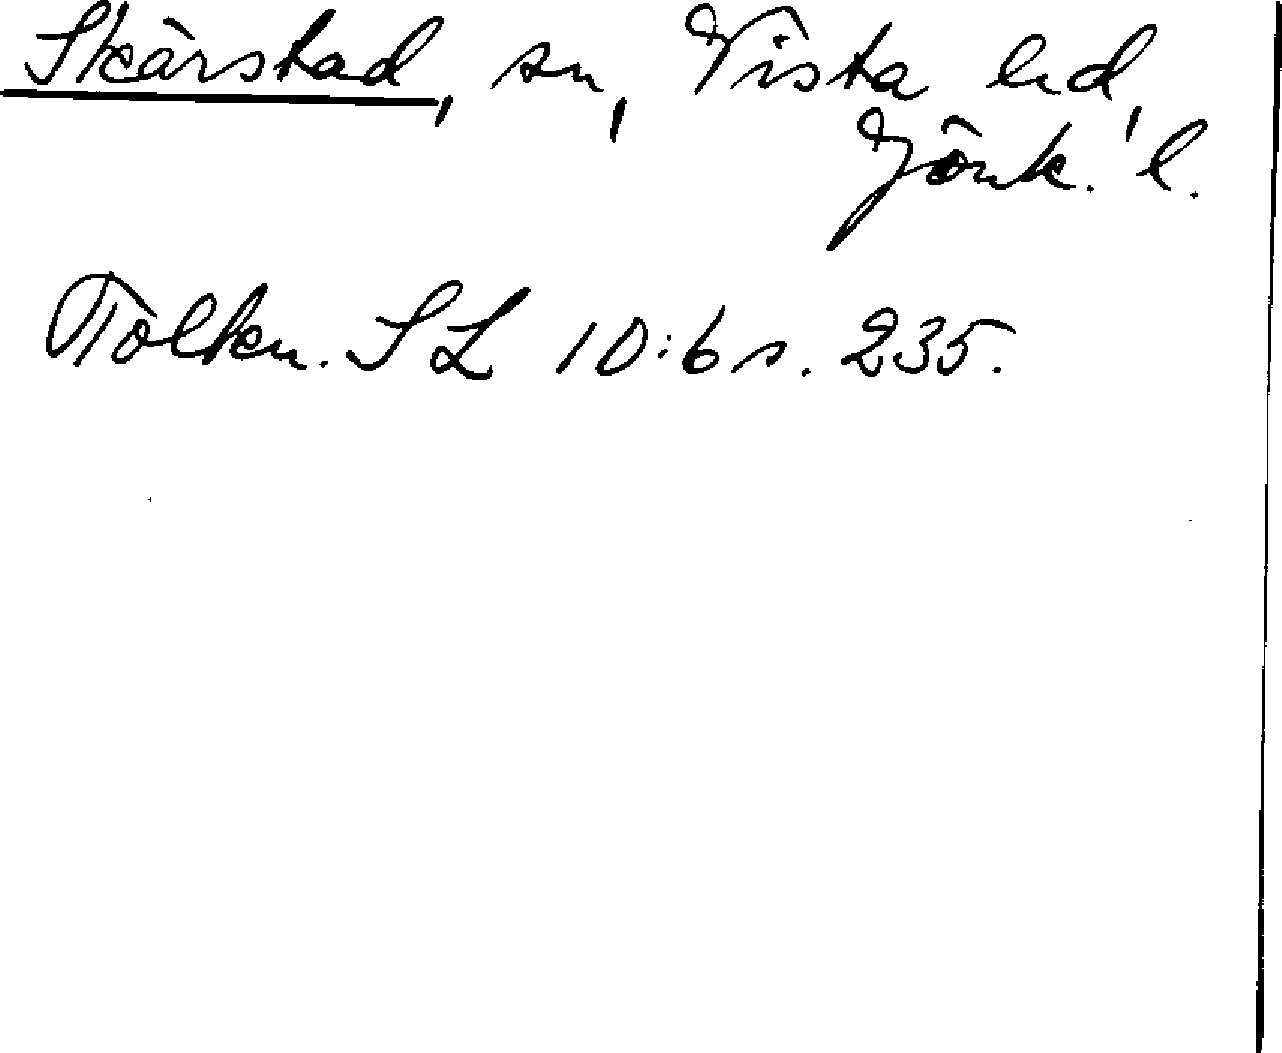 Skärstad, sn, Vista hd,
Jönk. l.
Tolkn. SL 10:6 s. 235.